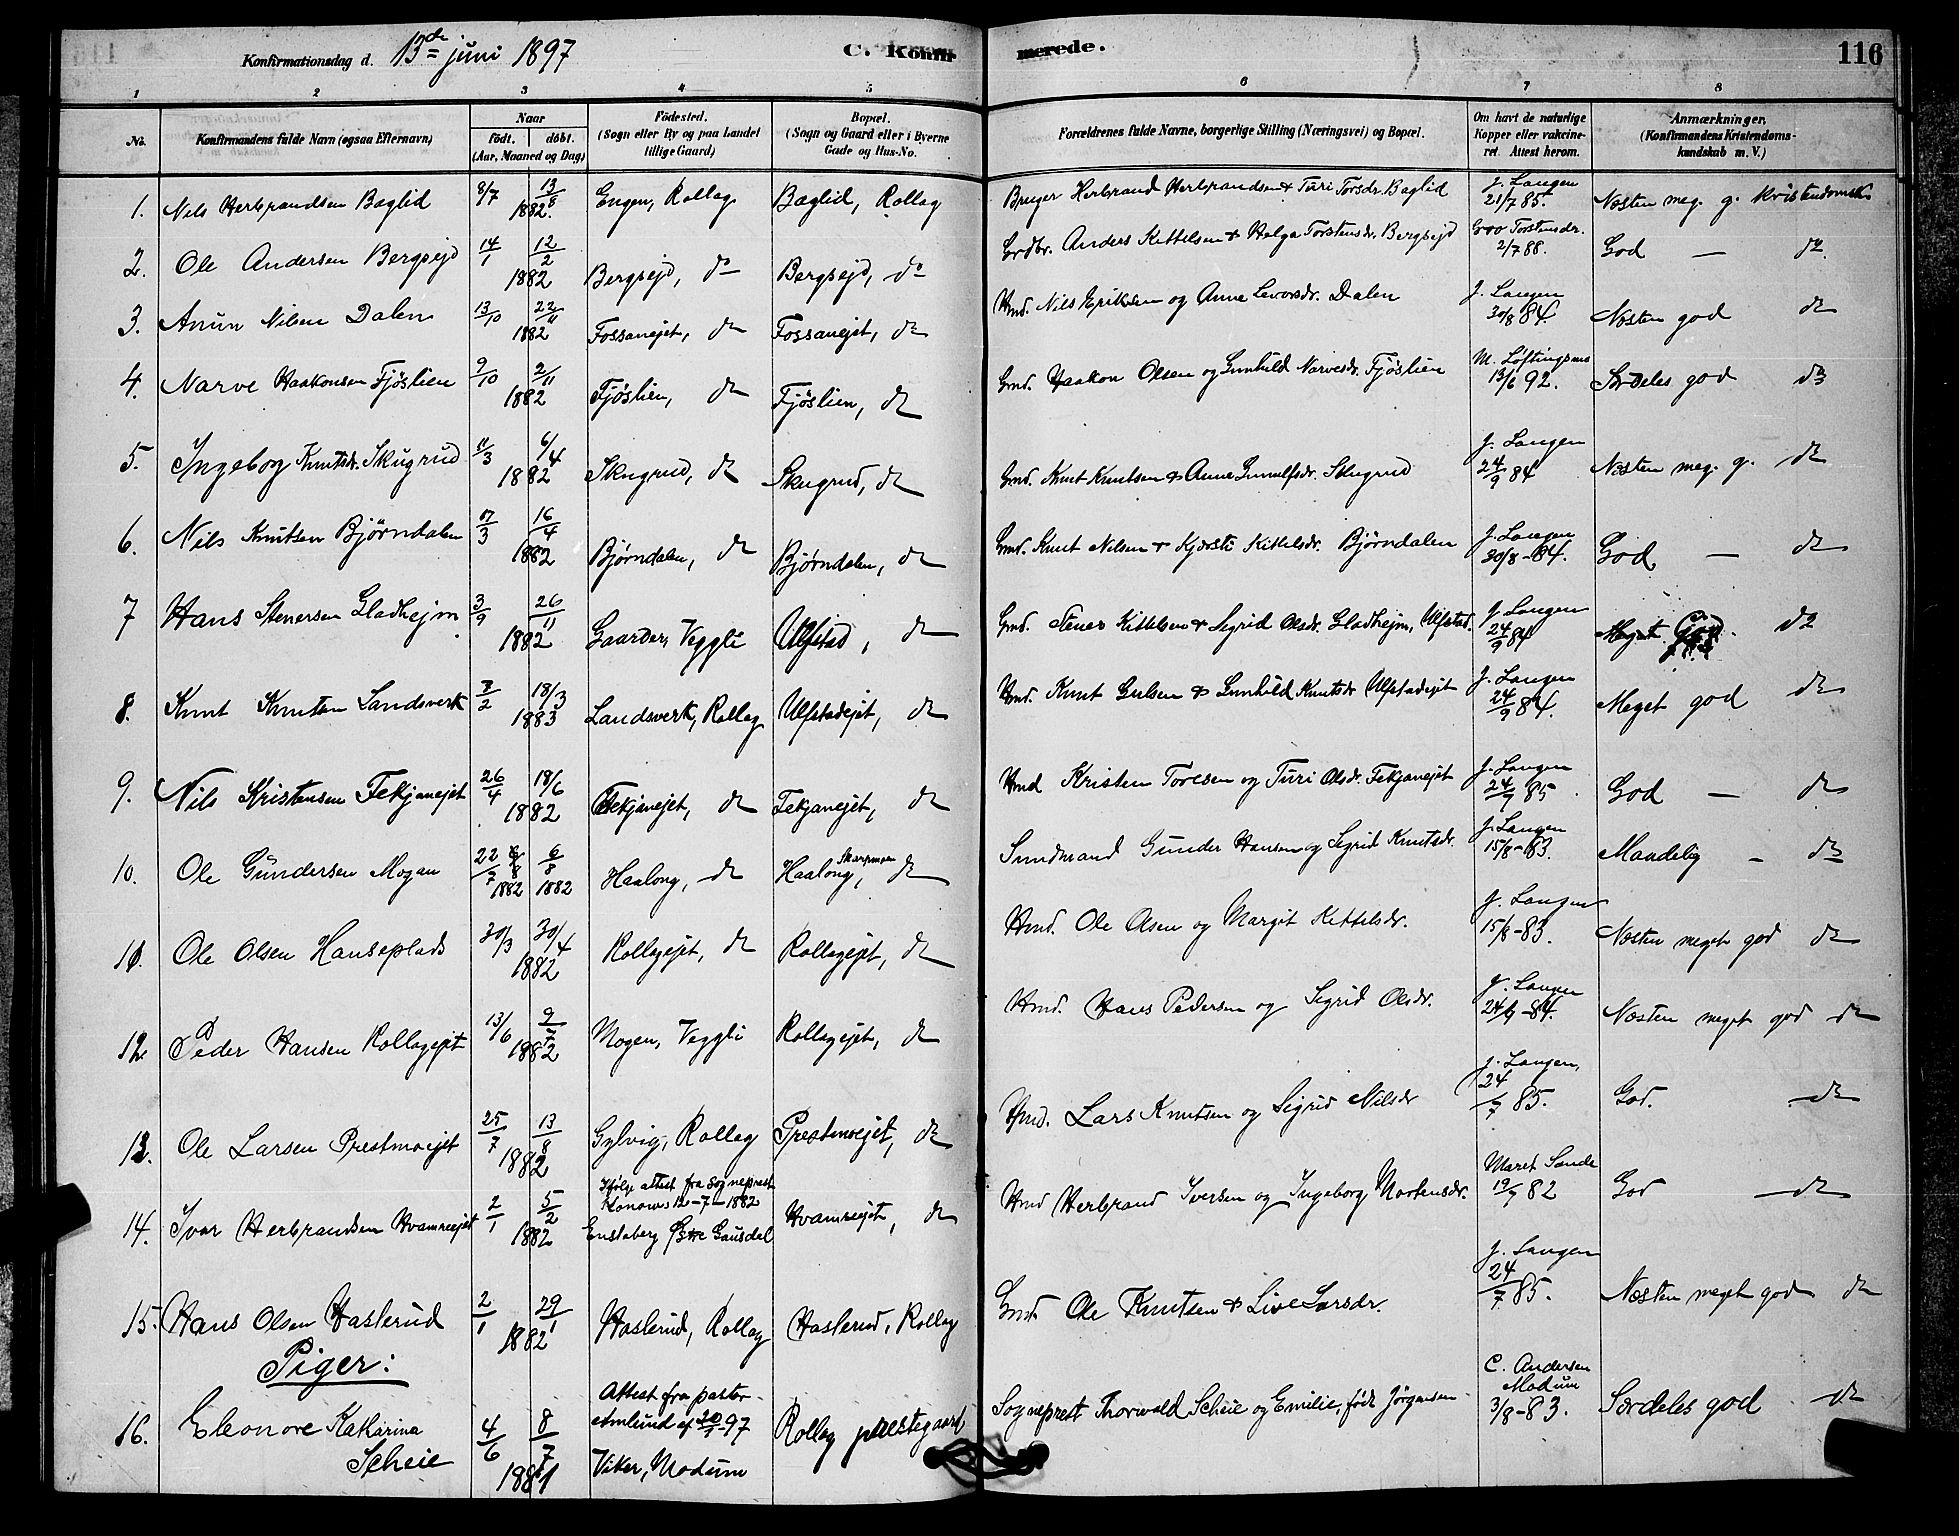 Konfirmationsdag d. 13de juni 1897 C. Konfirmerede. 116
1 2 3 4 5 6 7 8
No. Konfirmandens fulde Navn (ogsaa Efternavn) Naar født. døbt. (Aar, Maaned og Dag) Fødested. (Sogn eller By og paa Landet tillige Gaard) Bopæl. (Sogn og Gaard eller i Byerne Gade og Hus-No. Forældrenes fulde Navne, borgerlige Stilling (Næringsvei) og Bopæl. Om havt de naturlige Kopper eller vakcineret. Attest herom. Anmærkninger, (Konfirmandens Kristendomskundskab m. V.)
1. Nils Herbrandsen Baglid 8/7 13/8 1882. Engen, Rollag Baglid, Rollag Bruger Herbrand Herbrandsen & Turi Torsdr. Baglid J. Langen 21/7 85. Næsten meg. g. Kristendomsk.
2. Ole Andersen Bergsejd 14/1 12/2 1882 Bergsejd, do Bergsejd, do Grdbr. Anders Kittelsen & Helga Torstensdr. Bergsejd Goo Torstensdr. 2/7 88. God — do
3. Anun Nilsen Dalen 13/10 22/11 1882 Fossanejet, do Fossanejet, do Hmd. Nils Eriksen og Anne Levorsdr. Dalen J. Langen 30/8 84. Næsten god do
4. Narve Haakonsen Fjöslien 9/10 2/11 1882 Fjöslien, do Fjöslien, do Gmd. Haakon Olsen og Gunhild Narvesdr. Fjöslien M. Løftingsmo 13/6 92. Særdeles god do
5. Ingeborg Knutsdr. Skugrud 11/3 6/4 1882 Skugrud, do Skugrud, do Gmd. Knut Knutsen & Anne Gunulfsdr. Skugrud J. Langen 24/9 84 Næsten meg. g. do
6. Nils Knutsen Bjørndalen 17/3 16/4 1882 Bjørndalen, do Bjørndalen, do Gmd. Knut Nilsen & Kjersti Kittelsdr. Bjørndalen J. Langen 30/8-84. God — do
7 Hans Stenersen Gladhejm 3/9 26/11 1882 Gaarder, Veggli Ulfstad, do Gmd. Stener Kittelsen & Sigrid Olsdr. Gladhejm, Ulfstad. J. Langen 24/9 84 Meget God. do
8. Knut Knutsen Landsverk 7/2 18/3 1883 Landsverk, Rollag Ulfstadejet, do Hmd. Knut Gulsen & Gunhild Knutsdr Ulfstadejet J. Langen 24/9 84. Meget god do
9. Nils Kristensen Fekjanejet 26/4 18/6 1882 Fekjanejet, do Fekjanejet, do Hmd Kristen Toresen og Turi Olsdr. Fekjanejet J. Langen 24/7 85 God — do
10. Ole Gundersen Mogan 22/7 1882 6/8 1882 Haalong, do Haalong, do Gunder Hansen og Sigrid Knutsdr. J. Langen 15/8-83. Maadelig — do
11. Ole Olsen Hanseplads 30/3 30/4 1882 Rollagejet, do Rollagejet, do Hmd. Ole Olsen og Margit Kittelsdr. J. Langen 15/8-83. Næsten meget god do
12. Peder Hansen Rollagejet 13/6 9/7 1882 Mogen, Veggli Rollagejet, do Hmd. Hans Pedersen og Sigrid Olsdr. J. Langen 24/9-84. Næsten meget god do
13. Ole Larsen Prestmoejet 25/7 13/8 1882 Gylvig, Rollag Prestmoejet, do Hmd. Lars Knutsen og Sigrid Nilsdr J. Langen, 24/7 85. God. do
14. Ivar Herbrandsen Hvamreejet 2/1 5/2 1882 Ifølge attest fra sogneprest Konow 12-7-1882 Enstaberg Østre Gausdal Hvamreejet, do Hmd Herbrand Iversen og Ingeborg Mortensdr. Maret Sande 19/7 82 God do
15. Hans Olsen Haslerud 2/1 29/1 1882 Haslerud, Rollag Haslerud, Rollag Gmd. Ole Knutsen & Live Larsdr. J. Langen 24/7 85. Næsten meget god do
Piger:
16. Eleonore Katharina Scheie 4/6 8/7 1881 Attest fra pastor Amlund af 97 Viker, Modum Rollag præstegaard Sogneprest Thorwald Scheie og Emilie, født Jörgensen C. Andersen Modum 3/8-83. Særdeles god do